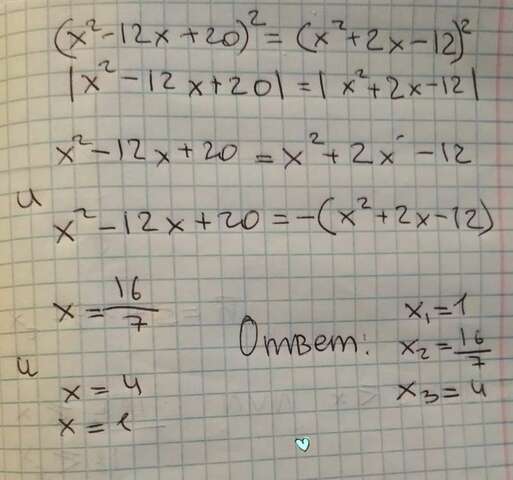 (x²-12x+20)² = (x²+2x-12)²
|x²-12x+20| = |x²+2x-12|
x²-12x+20 = x²+2x-12
и
x²-12x+20 = -(x²+2x-12)
x = 16/7
и
x = 4
x = 1
Ответ:
x₁=1
x₂=16/7
x₃=4